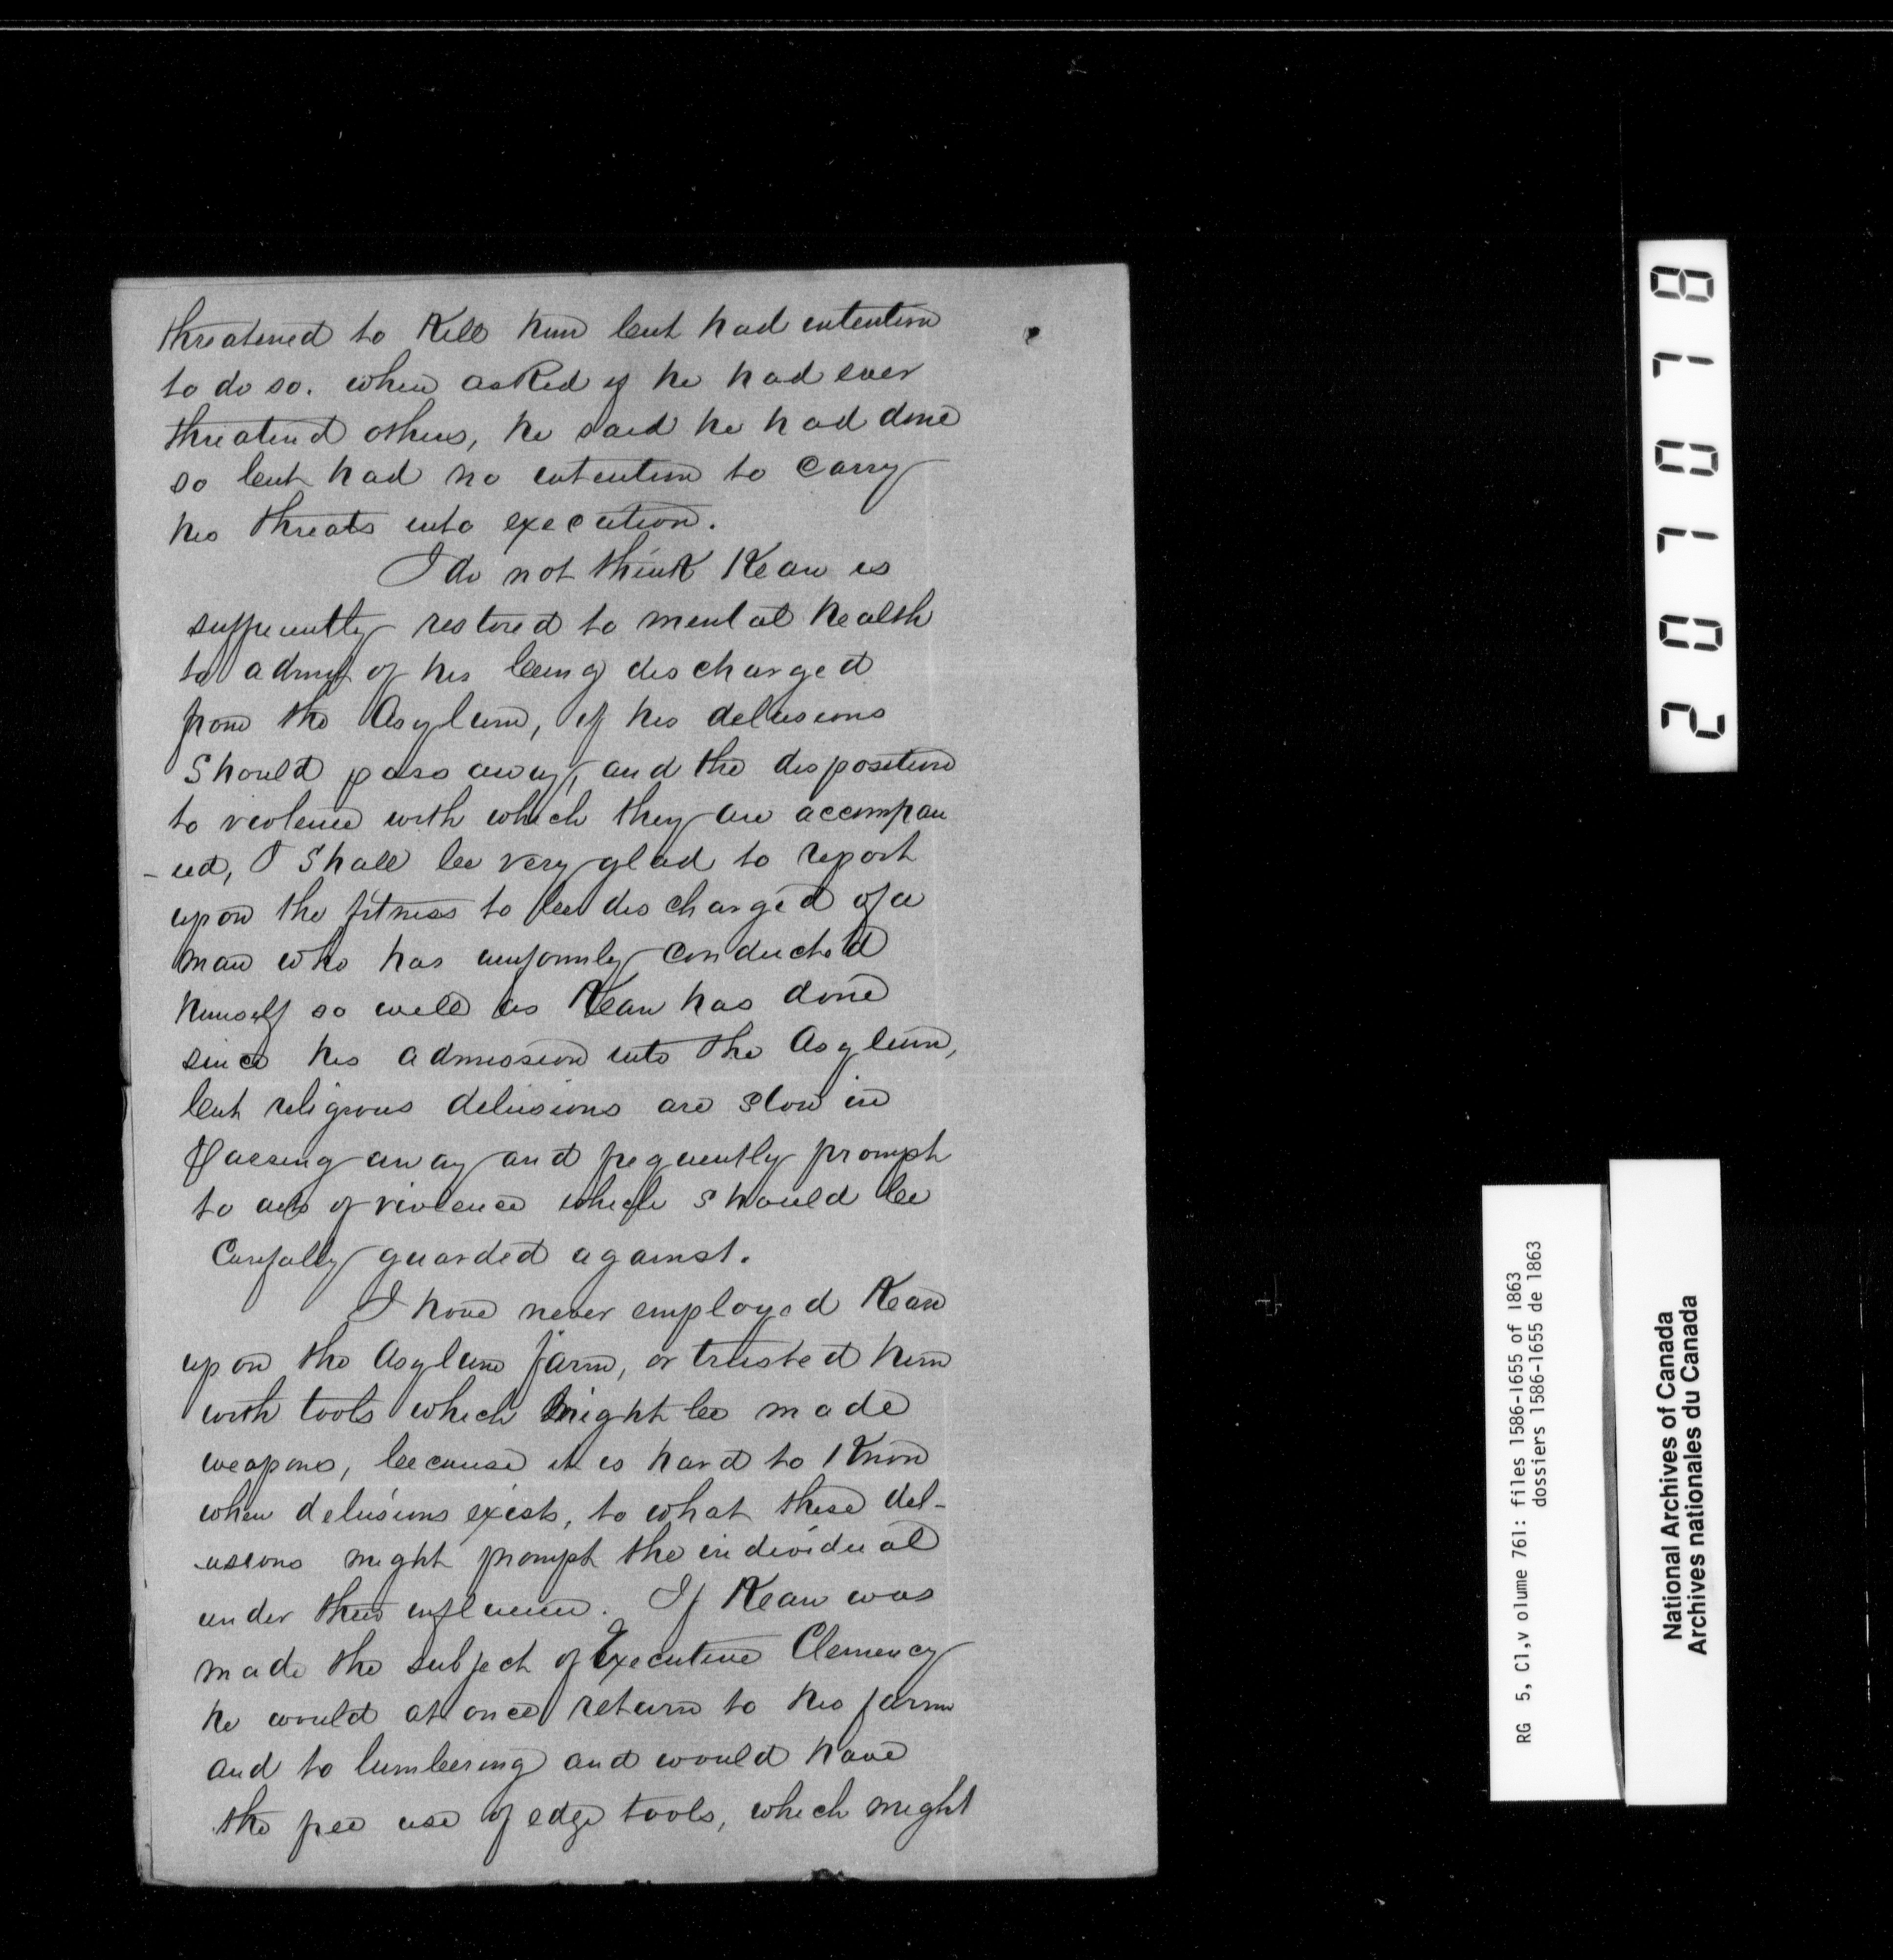 threatened to Kill him but had intention
to do so. when asked if he had ever
threatend others, he said he had done
so but had no intention to Carry
his threats into execution.
I do not think Kean is
sufficiently restored to mental health
to admit of his being discharged
from the Asylum, if his delusions
Should pass away, and the disposition
to violence with which they are accompan
-ied, I Shall be very glad to report
upon the fitness to be discharged of a
man who has uniformly conducted
himself so well as Kean has done
since his admission into the Asylum,
but religious delusions are slow in
Passing away and frequently prompt
to acts of violence which should be
Carefully guarded against.
I have never employed Kean
upon the Asylum farm, or trusted him
with tools which might be made
weapons, because it is hard to Know
when delusions exists, to what these del-
-usions might prompt the individual
under their influence. If Kean was
made the subject of Executive Clemency
he would at once return to his farm
and to lumbering and would have
the free use of edge tools, which might
2071078
RG 5, C1,v olume 761: files 1586-1655 of 1863
dossiers 1586-1655 de 1863
National Archives of Canada
Archives nationales du Canada